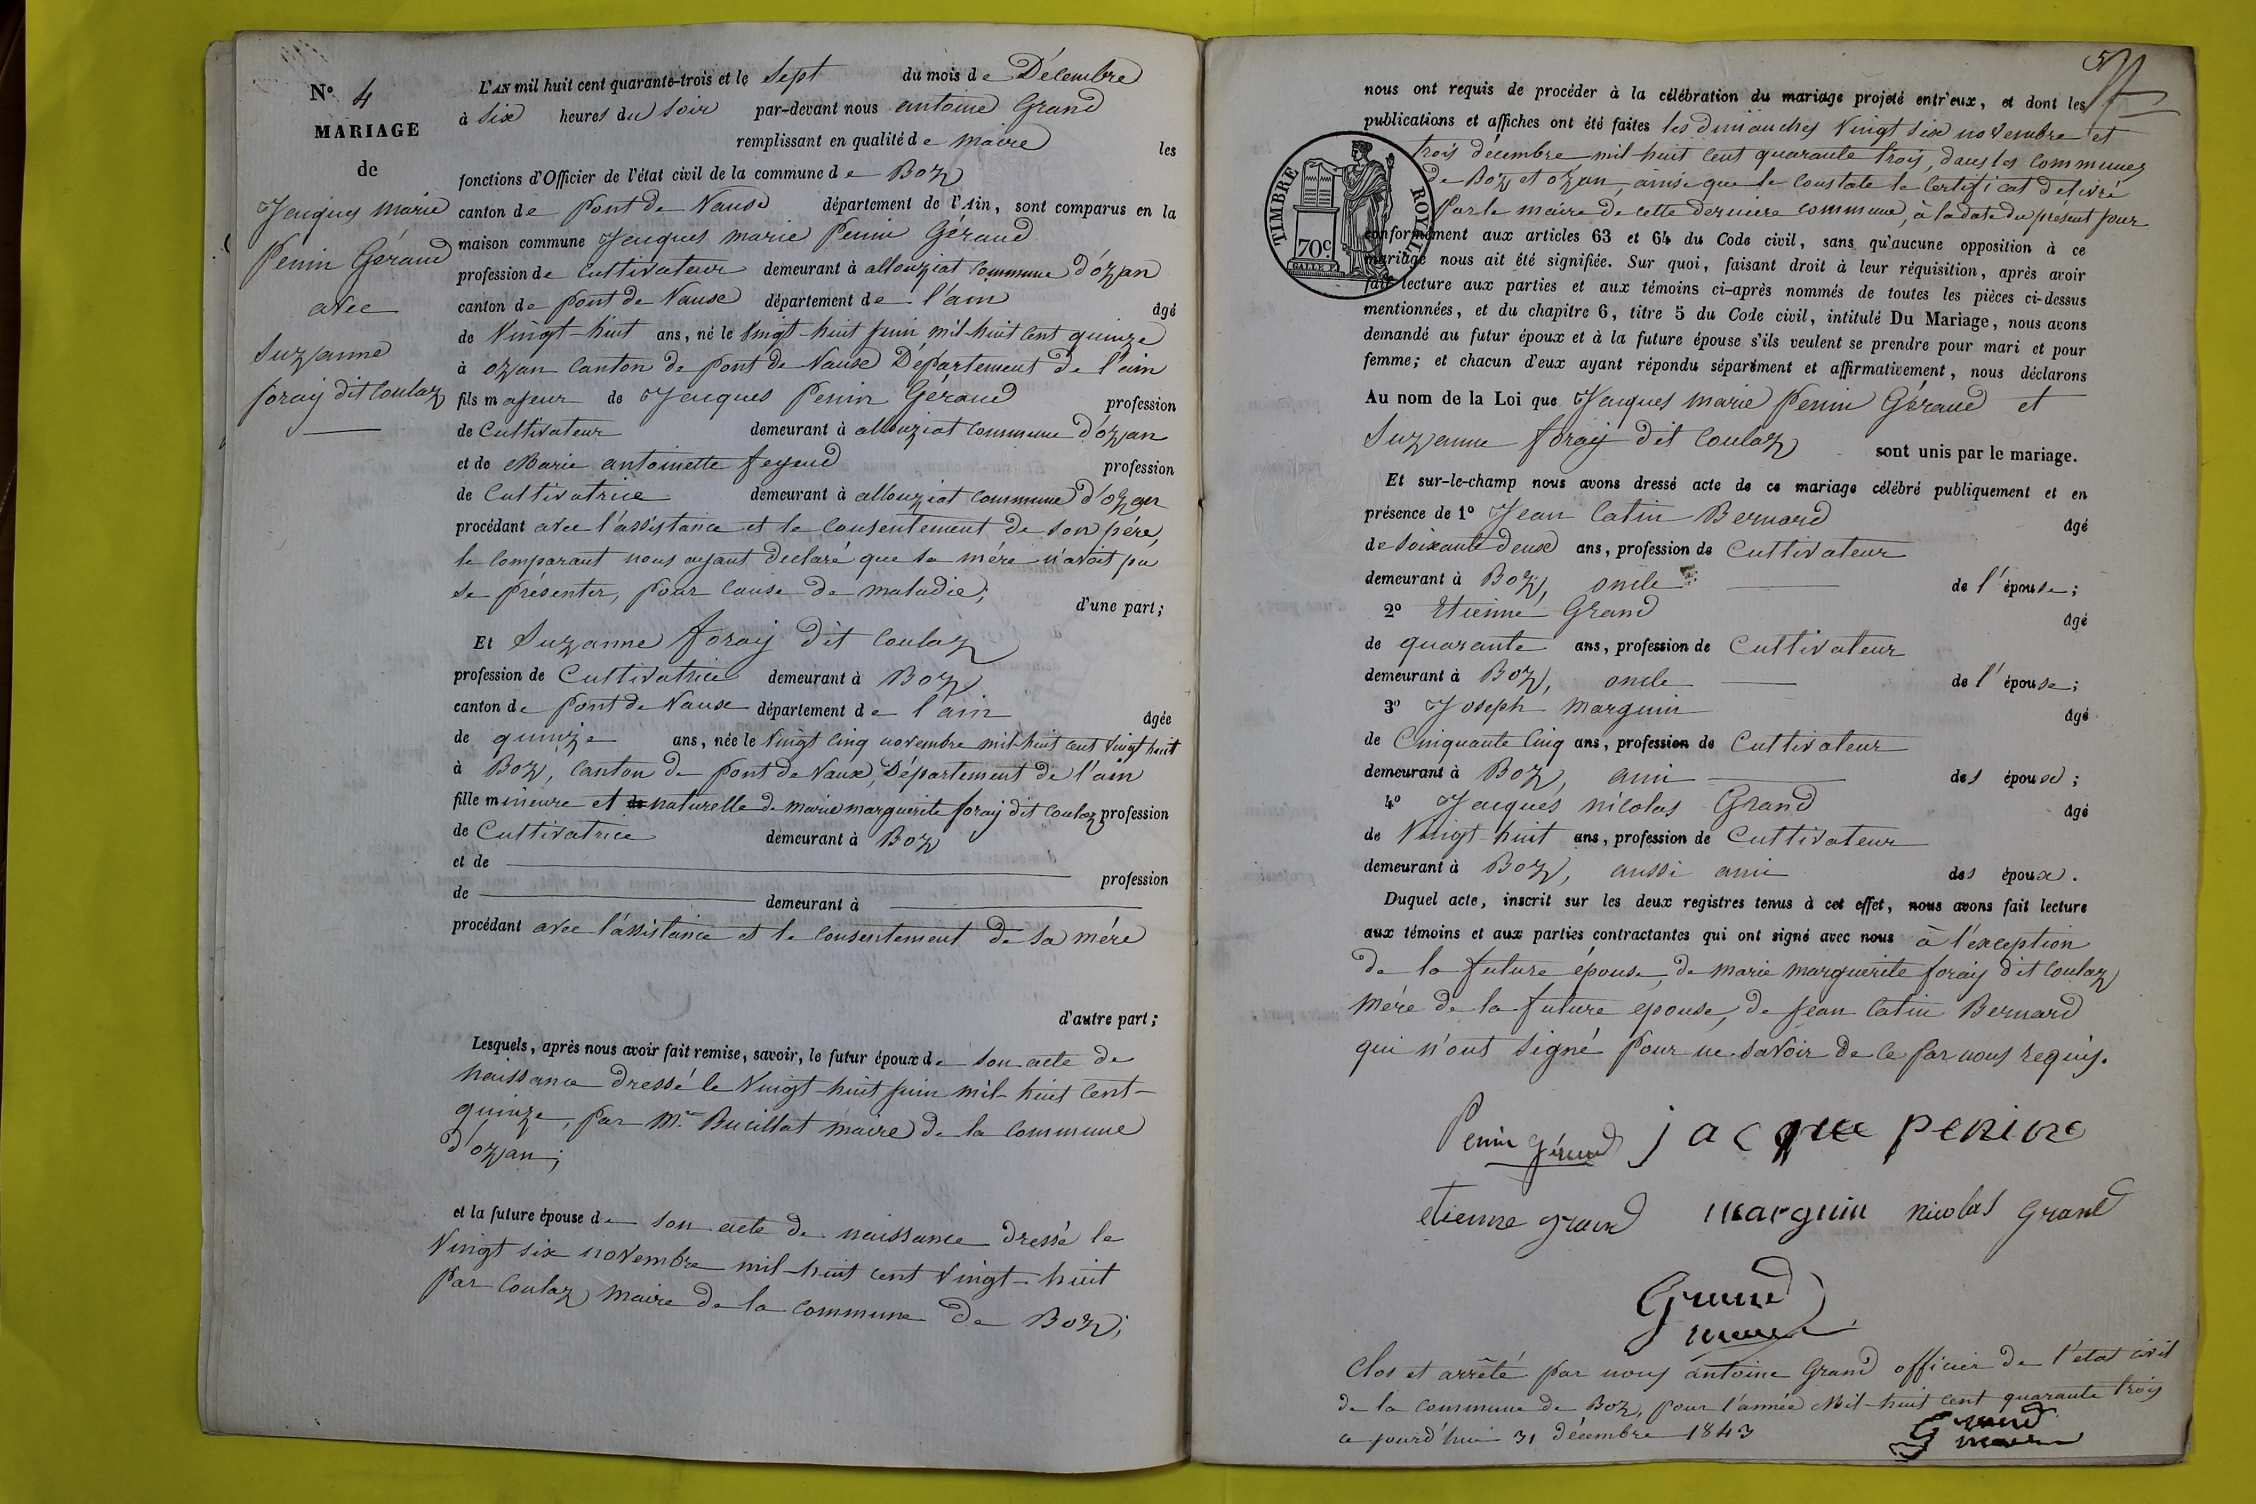 N° 4
MARIAGE
de
Jacques marie
Penin Géraud
avec
Suzanne
foray dit Coulaz
L'AN mil huit cent quarante-trois et le Sept du mois de Décembre
à six heures du soir par-devant nous antoine Grand
remplissant en qualité de maire les
fonctions d'Officier de l'état civil de la commune de Boz
canton de pont de Vause département de l'Ain, sont comparus en la
maison commune Jacques marie Penin Géraud
profession de Cultivateur demeurant à allouziat commune d'ozan
canton de pont de Vause département de l'ain âgé
de Vingt-huit ans, né le Vingt-huit juin mil-huit cent quinze
à ozan canton de pont de Vause Département de l'ain
fils majeur de Jacques Penin Géraud profession
de Cultivateur demeurant à allouziat commune d'ozan
et de Marie antoinette feyeud profession
de Cultivatrice demeurant à allouziat commune d'ozan
procédant avec l'assistance et le consentement de son père,
le comparant nous ayant declaré que sa mère n'avait pu
se présenter, pour cause de maladie; d'une part;
Et Suzanne foray dit Coulaz
profession de Cultivatrice demeurant à Boz
canton de pont de Vause département de l'ain âgée
de quinze ans, née le Vingt cinq novembre mil-huit cent vingt huit
à Boz, canton de pont de Vaux, Département de l'ain
fille mineure et naturelle de marie marguerite foray dit Coulaz profession
de Cultivatrice demeurant à Boz
et de profession
de demeurant à
procédant avec l'assistance et le consentement de sa mère
d'autre part;
Lesquels, après nous avoir fait remise, savoir, le futur époux de son acte de
naissance dressé le Vingt-huit juin mil-huit cent-
quinze, par Mr. Bucillat maire de la commune
d'ozan;
et la future épouse de son acte de naissance dressé le
Vingt six novembre mil-huit cent vingt-huit
par Coulaz maire de la commune de Boz;
nous ont requis de procéder à la célébration du mariage projeté entr'eux, et dont les
publications et affiches ont été faites les dimanches Vingt six novembre et
trois décembre mil-huit cent quarante trois, dans les communes
de Boz et ozan, ainsi que le constate le certificat delivré
par le maire de cette derniere commune, à la date du présent jour
TIMBRE ROYAL
70c.
conformément aux articles 63 et 64 du Code civil, sans qu'aucune opposition à ce
mariage nous ait été signifiée. Sur quoi, faisant droit à leur réquisition, après avoir
fait lecture aux parties et aux témoins ci-après nommés de toutes les pièces ci-dessus
mentionnées, et du chapitre 6, titre 5 du Code civil, intitulé Du Mariage, nous avons
demandé au futur époux et à la future épouse s'ils veulent se prendre pour mari et pour
femme; et chacun d'eux ayant répondu séparément et affirmativement, nous déclarons
Au nom de la Loi que Jacques marie Penin Géraud et
Suzanne foray dit Coulaz sont unis par le mariage.
Et sur-le-champ nous avons dressé acte de ce mariage célébré publiquement et en
présence de 1° Jean Catin Bernard âgé
de soixante deux ans, profession de Cultivateur
demeurant à Boz, oncle de l'épouse;
2° Etienne Grand âgé
de quarante ans, profession de Cultivateur
demeurant à Boz, oncle de l'épouse;
3° Joseph Marguin âgé
de Cinquante Cinq ans, profession de Cultivateur
demeurant à Boz, ami des époux;
4° Jacques nicolas Grand âgé
de Vingt-huit ans, profession de Cultivateur
demeurant à Boz, aussi ami des époux.
Duquel acte, inscrit sur les deux registres tenus à cet effet, nous avons fait lecture
aux témoins et aux parties contractantes qui ont signé avec nous à l'exception
de la future épouse, de marie marguerite foray dit Coulaz
mère de la future epouse, de Jean Catin Bernard
qui n'ont signé pour ne savoir de ce par nous requis.
Penin Géraud jacque penine
etienne grand marguin nicolas grand
Grand
maire
Clos et arrêté par nous antoine Grand officier de l'état civil
de la commune de Boz, pour l'année Mil-huit cent quarante trois
ce jourd'hui 31 décembre 1843
Grand
maire